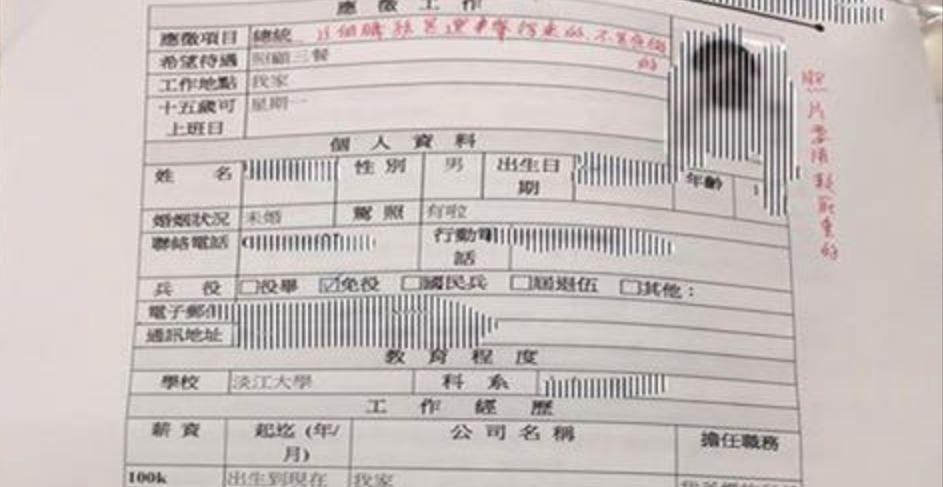 應徵工作
應徵項目 總統 這個職務是選舉得來的,不是應徵的
希望待遇 照顧三餐
工作地點 我家
十五歲可上班日 星期一
照片要清點嚴重的
個人資料
姓名 性別 男 出生日期 年齡
婚姻狀況 未婚 駕照 有啦
聯絡電話 行動電話
兵役 □役畢 ☑免役 □國民兵 □屆退伍 □其他:
電子郵
通訊地址
教育程度
學校 淡江大學 科系
工作經歷
薪資 起迄(年/月) 公司名稱 擔任職務
100k 出生到現在 我家